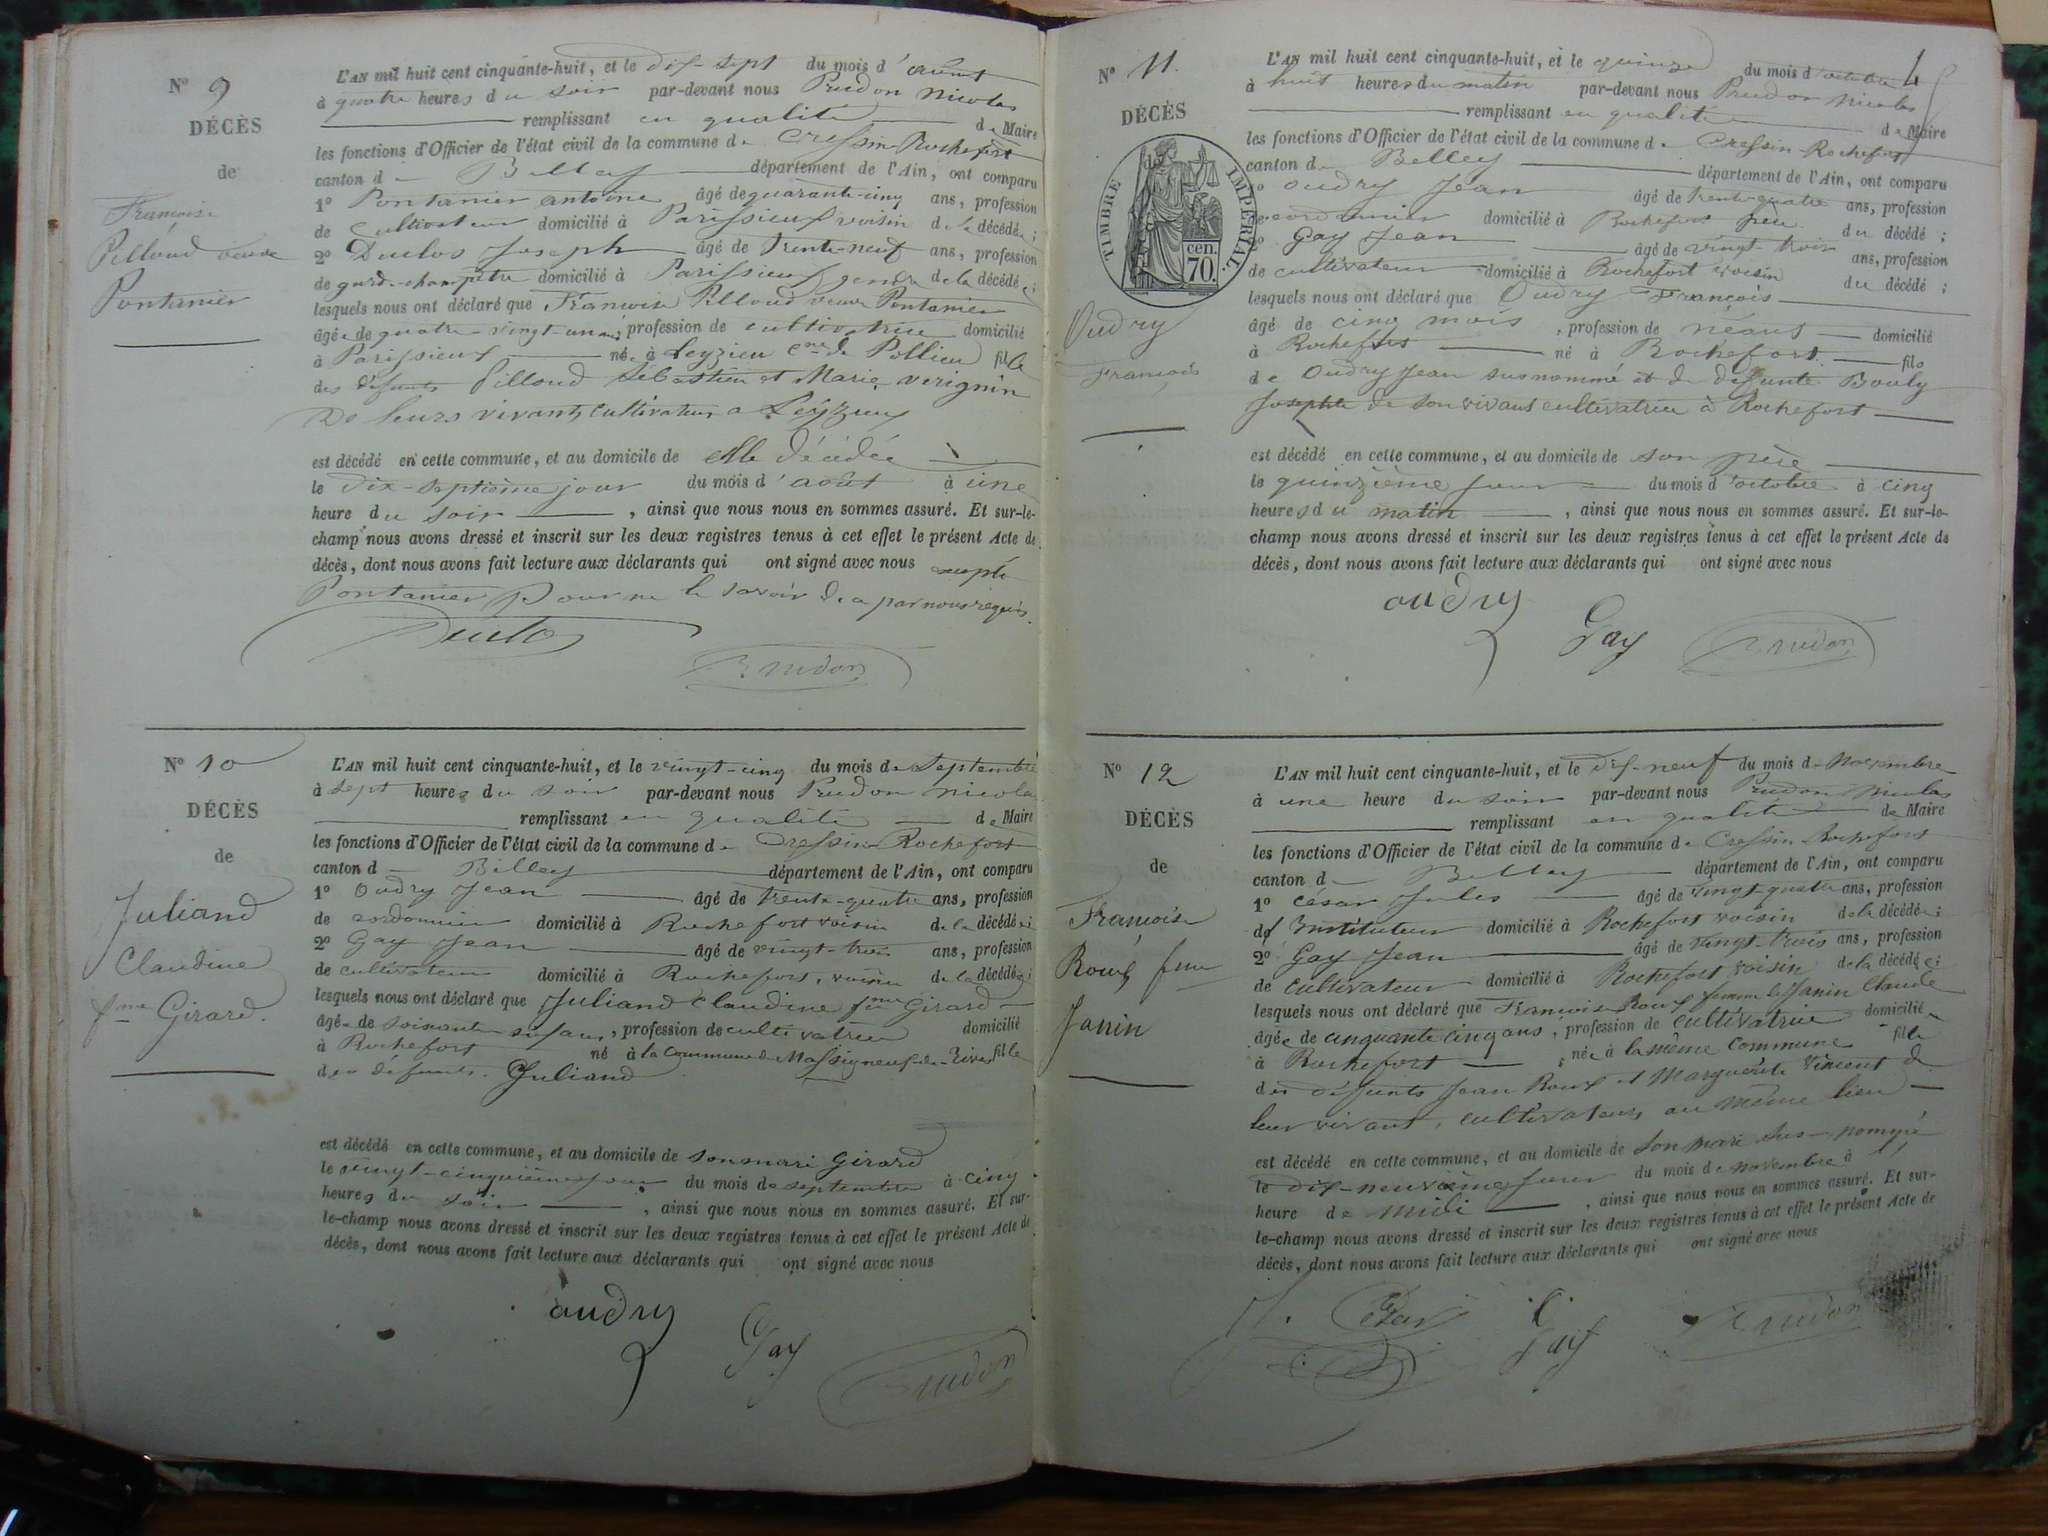 N° 9
DÉCÈS
de
Françoise
Pilloud veuve
Pontanier
L'AN mil huit cent cinquante-huit, et le dix-sept du mois d'août
à quatre heures du soir par-devant nous Prudon Nicolas
remplissant en qualité de Maire
les fonctions d'Officier de l'état civil de la commune de Cressin-Rochefort
canton d Belley département de l'Ain, ont comparu
1° Pontanier antoine âgé de quarante-cinq ans, profession
de cultivateur domicilié à Parissieux voisin de la décédée;
2° Duclos Joseph âgé de trente-neuf ans, profession
de garde-champêtre domicilié à Parissieux gendre de la décédée;
lesquels nous ont déclaré que Françoise Pilloud veuve Pontanier
âgée de quatre-vingt-un ans, profession de cultivatrice domicilié
à Parissieux née à Leyzieu Cne de Pollieu fille
des défunts Pilloud Sébastien et Marie Verignin
De leurs vivants cultivateurs a Leyzieu
est décédé en cette commune, et au domicile de elle décédée
le dix-septième jour du mois d'août à une
heure du soir, ainsi que nous nous en sommes assuré. Et sur-le-
champ nous avons dressé et inscrit sur les deux registres tenus à cet effet le présent Acte de
décès, dont nous avons fait lecture aux déclarants qui ont signé avec nous excepté
Pontanier pour ne le savoir de ce par nous requis.
Duclos
Prudon
N° 10
DÉCÈS
de
Juliand
Claudine
fme Girard.
L'AN mil huit cent cinquante-huit, et le vingt-cinq du mois de Septembre
à sept heures du soir par-devant nous Prudon Nicolas
remplissant en qualité de Maire
les fonctions d'Officier de l'état civil de la commune de Cressin-Rochefort
canton d Belley département de l'Ain, ont comparu
1° Oudry Jean âgé de trente-quatre ans, profession
de cordonnier domicilié à Rochefort voisin de la décédée;
2° Gay Jean âgé de vingt-trois ans, profession
de cultivateur domicilié à Rochefort, voisin de la décédée;
lesquels nous ont déclaré que Juliand Claudine fme Girard
âgée de soixante six ans, profession de cultivatrice domicilié
à Rochefort né à la commune de Massigneux-de-Rives fille
des défunts Juliand
est décédé en cette commune, et au domicile de son mari Girard
le vingt-cinquième jour du mois de septembre à cinq
heures du soir, ainsi que nous nous en sommes assuré. Et sur-
le-champ nous avons dressé et inscrit sur les deux registres tenus à cet effet le présent Acte de
décès, dont nous avons fait lecture aux déclarants qui ont signé avec nous
oudry
Gay
Prudon
N° 11.
DÉCÈS
de
TIMBRE IMPÉRIAL.
70. cen.
Oudry
François
L'AN mil huit cent cinquante-huit, et le quinze du mois d'octobre
à huit heures du matin par-devant nous Prudon Nicolas
remplissant en qualité de Maire
les fonctions d'Officier de l'état civil de la commune de Cressin-Rochefort
canton d Belley département de l'Ain, ont comparu
1° Oudry Jean âgé de trente-quatre ans, profession
de cordonnier domicilié à Rochefort père du décédé;
2° Gay Jean âgé de vingt trois ans, profession
de cultivateur domicilié à Rochefort voisin du décédé;
lesquels nous ont déclaré que Oudry François
âgé de cinq mois, profession de néant domicilié
à Rochefort né à Rochefort fils
de Oudry Jean susnommé et de défunte Bouly
Josephte de son vivant cultivatrice à Rochefort
est décédé en cette commune, et au domicile de son père
le quinzième jour du mois d'octobre à cinq
heures du matin, ainsi que nous nous en sommes assuré. Et sur-le-
champ nous avons dressé et inscrit sur les deux registres tenus à cet effet le présent Acte de
décès, dont nous avons fait lecture aux déclarants qui ont signé avec nous
oudry
Gay
Prudon
N° 12
DÉCÈS
de
Françoise
Roux fme
Janin
L'AN mil huit cent cinquante-huit, et le dix-neuf du mois de Novembre
à une heure du soir par-devant nous Prudon Nicolas
remplissant en qualité de Maire
les fonctions d'Officier de l'état civil de la commune de Cressin-Rochefort
canton d Belley département de l'Ain, ont comparu
1° César Jules âgé de vingt-quatre ans, profession
d'Instituteur domicilié à Rochefort voisin de la décédée;
2° Gay Jean âgé de vingt-trois ans, profession
de cultivateur domicilié à Rochefort voisin de la décédée;
lesquels nous ont déclaré que Françoise Roux femme de Janin Claude
âgée de cinquante cinq ans, profession de cultivatrice domiciliée
à Rochefort, née à la même Commune fille
des défunts Jean Roux et Marguerite Vincent de
leur vivant, cultivateurs au même lieu
est décédé en cette commune, et au domicile de son mari sus-nommé
le dix-neuvième jour du mois de novembre à l'
heure de midi, ainsi que nous nous en sommes assuré. Et sur-
le-champ nous avons dressé et inscrit sur les deux registres tenus à cet effet le présent Acte de
décès, dont nous avons fait lecture aux déclarants qui ont signé avec nous
J. César
Gay
Prudon